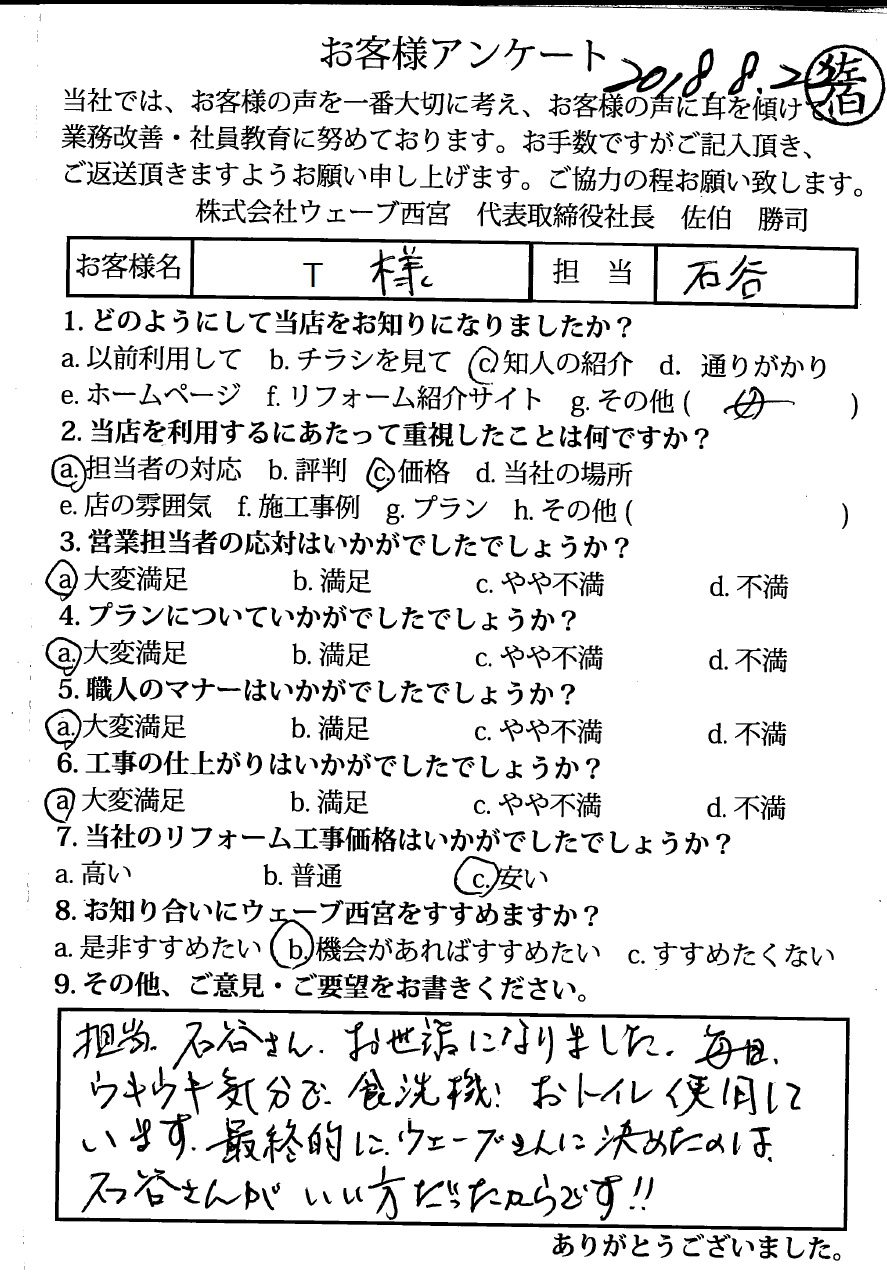 お客様アンケート 2018.8.2 佐伯
当社では、お客様の声を一番大切に考え、お客様の声に耳を傾けて、
業務改善・社員教育に努めております。お手数ですがご記入頂き、
ご返送頂きますようお願い申し上げます。ご協力の程お願い致します。
株式会社ウェーブ西宮 代表取締役社長 佐伯 勝司
お客様名 T 様 担 当 石谷
1. どのようにして当店をお知りになりましたか？
a. 以前利用して b. チラシを見て c. 知人の紹介 d. 通りがかり
e. ホームページ f. リフォーム紹介サイト g. その他 ( )
2. 当店を利用するにあたって重視したことは何ですか？
a. 担当者の対応 b. 評判 c. 価格 d. 当社の場所
e. 店の雰囲気 f. 施工事例 g. プラン h. その他 ( )
3. 営業担当者の応対はいかがでしたでしょうか？
a 大変満足 b. 満足 c. やや不満 d. 不満
4. プランについていかがでしたでしょうか？
a. 大変満足 b. 満足 c. やや不満 d. 不満
5. 職人のマナーはいかがでしたでしょうか？
a. 大変満足 b. 満足 c. やや不満 d. 不満
6. 工事の仕上がりはいかがでしたでしょうか？
a 大変満足 b. 満足 c. やや不満 d. 不満
7. 当社のリフォーム工事価格はいかがでしたでしょうか？
a. 高い b. 普通 c. 安い
8. お知り合いにウェーブ西宮をすすめますか？
a. 是非すすめたい b. 機会があればすすめたい c. すすめたくない
9. その他、ご意見・ご要望をお書きください。
担当、石谷さん、お世話になりました。毎日、
ウキウキ気分で、食洗機、おトイレ使用して
います。最終的に、ウェーブさんに決めたのは、
石谷さんが いい方だったからです!!
ありがとうございました。